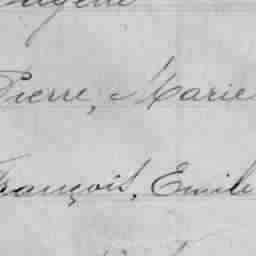 Eugène
Pierre, Marie
François, Emile